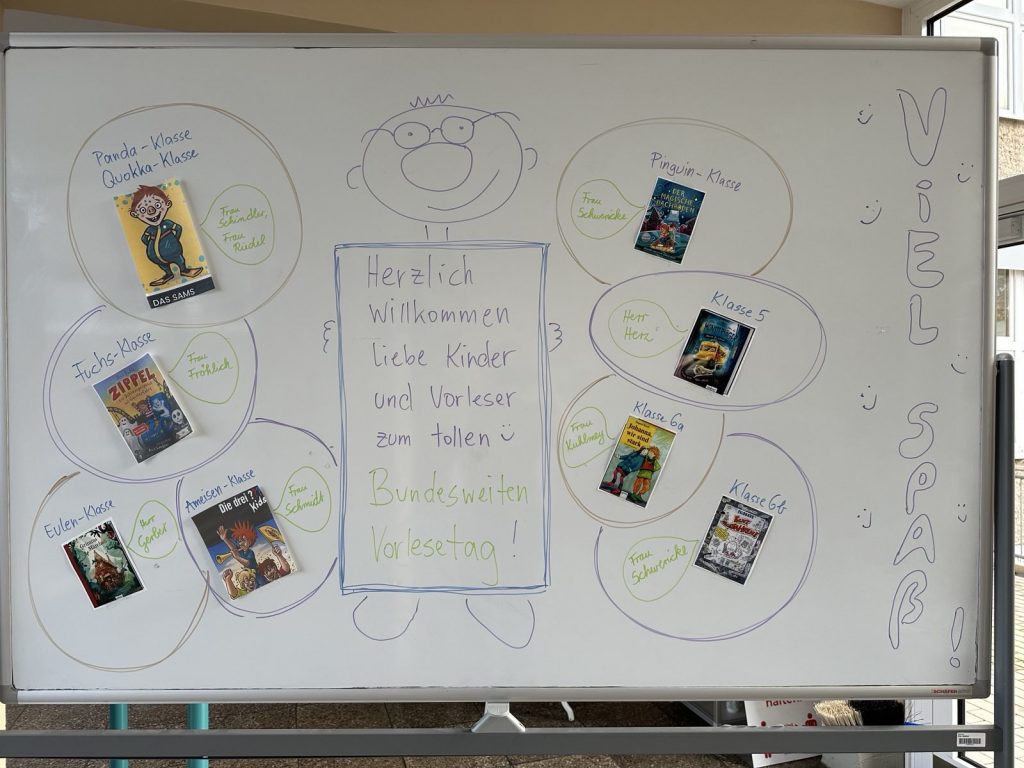 Panda-Klasse
Quokka-Klasse
Frau
Schindler,
Frau
Riedel
DAS SAMS
Fuchs-Klasse
Frau
Fröhlich
ZIPPEL
Eulen-Klasse
Herr
Gerber
Ameisen-Klasse
Frau
Schmidt
Die drei ?
kids
Herzlich
Willkommen
liebe Kinder
und Vorleser
zum tollen
Bundesweiten
Vorlesetag!
Pinguin-Klasse
Frau
Schwericke
DER
MAGISCHE
DACHBODEN
Klasse 5
Herr
Herz
Klasse 6a
Frau
Kuhlmey
Johanna,
wir sind
stark
Klasse 6b
Frau
Schwericke
ViEL SPAß!
SCHÄFER
halten